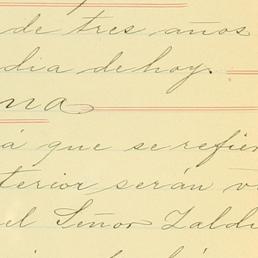 de tres años
dia de hoy.
na
á que se refier
terior serán v
el Señor Zaldi